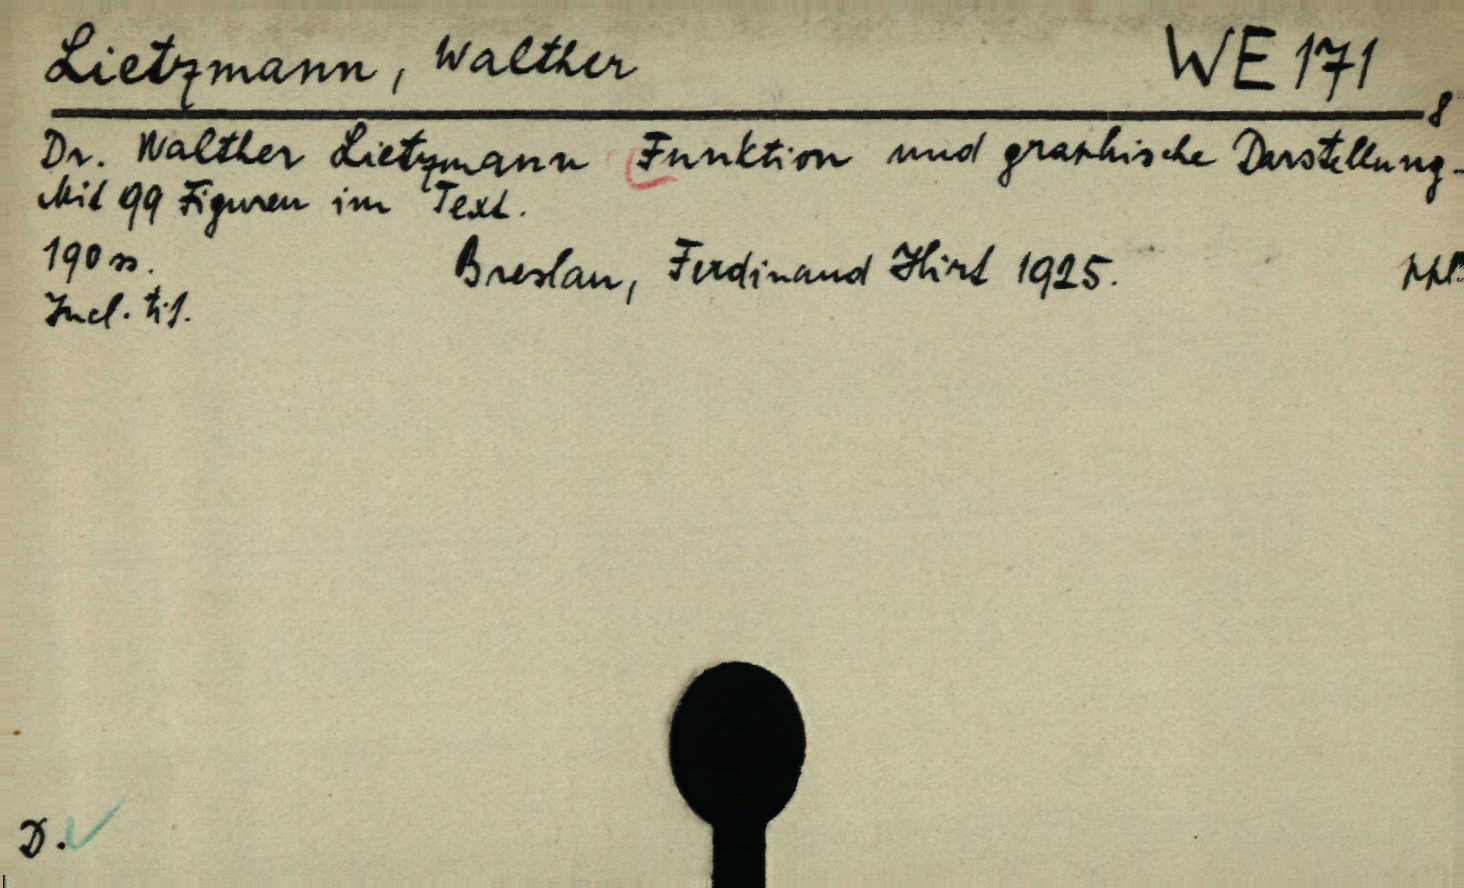 Lietzmann, Walther WE 171
8
Dr. Walther Lietzmann Funktion und graphische Darstellung.
Mit 99 Figuren im Text.
190 ss. Breslau, Ferdinand Hirt 1925.
Incl. tit.
D.